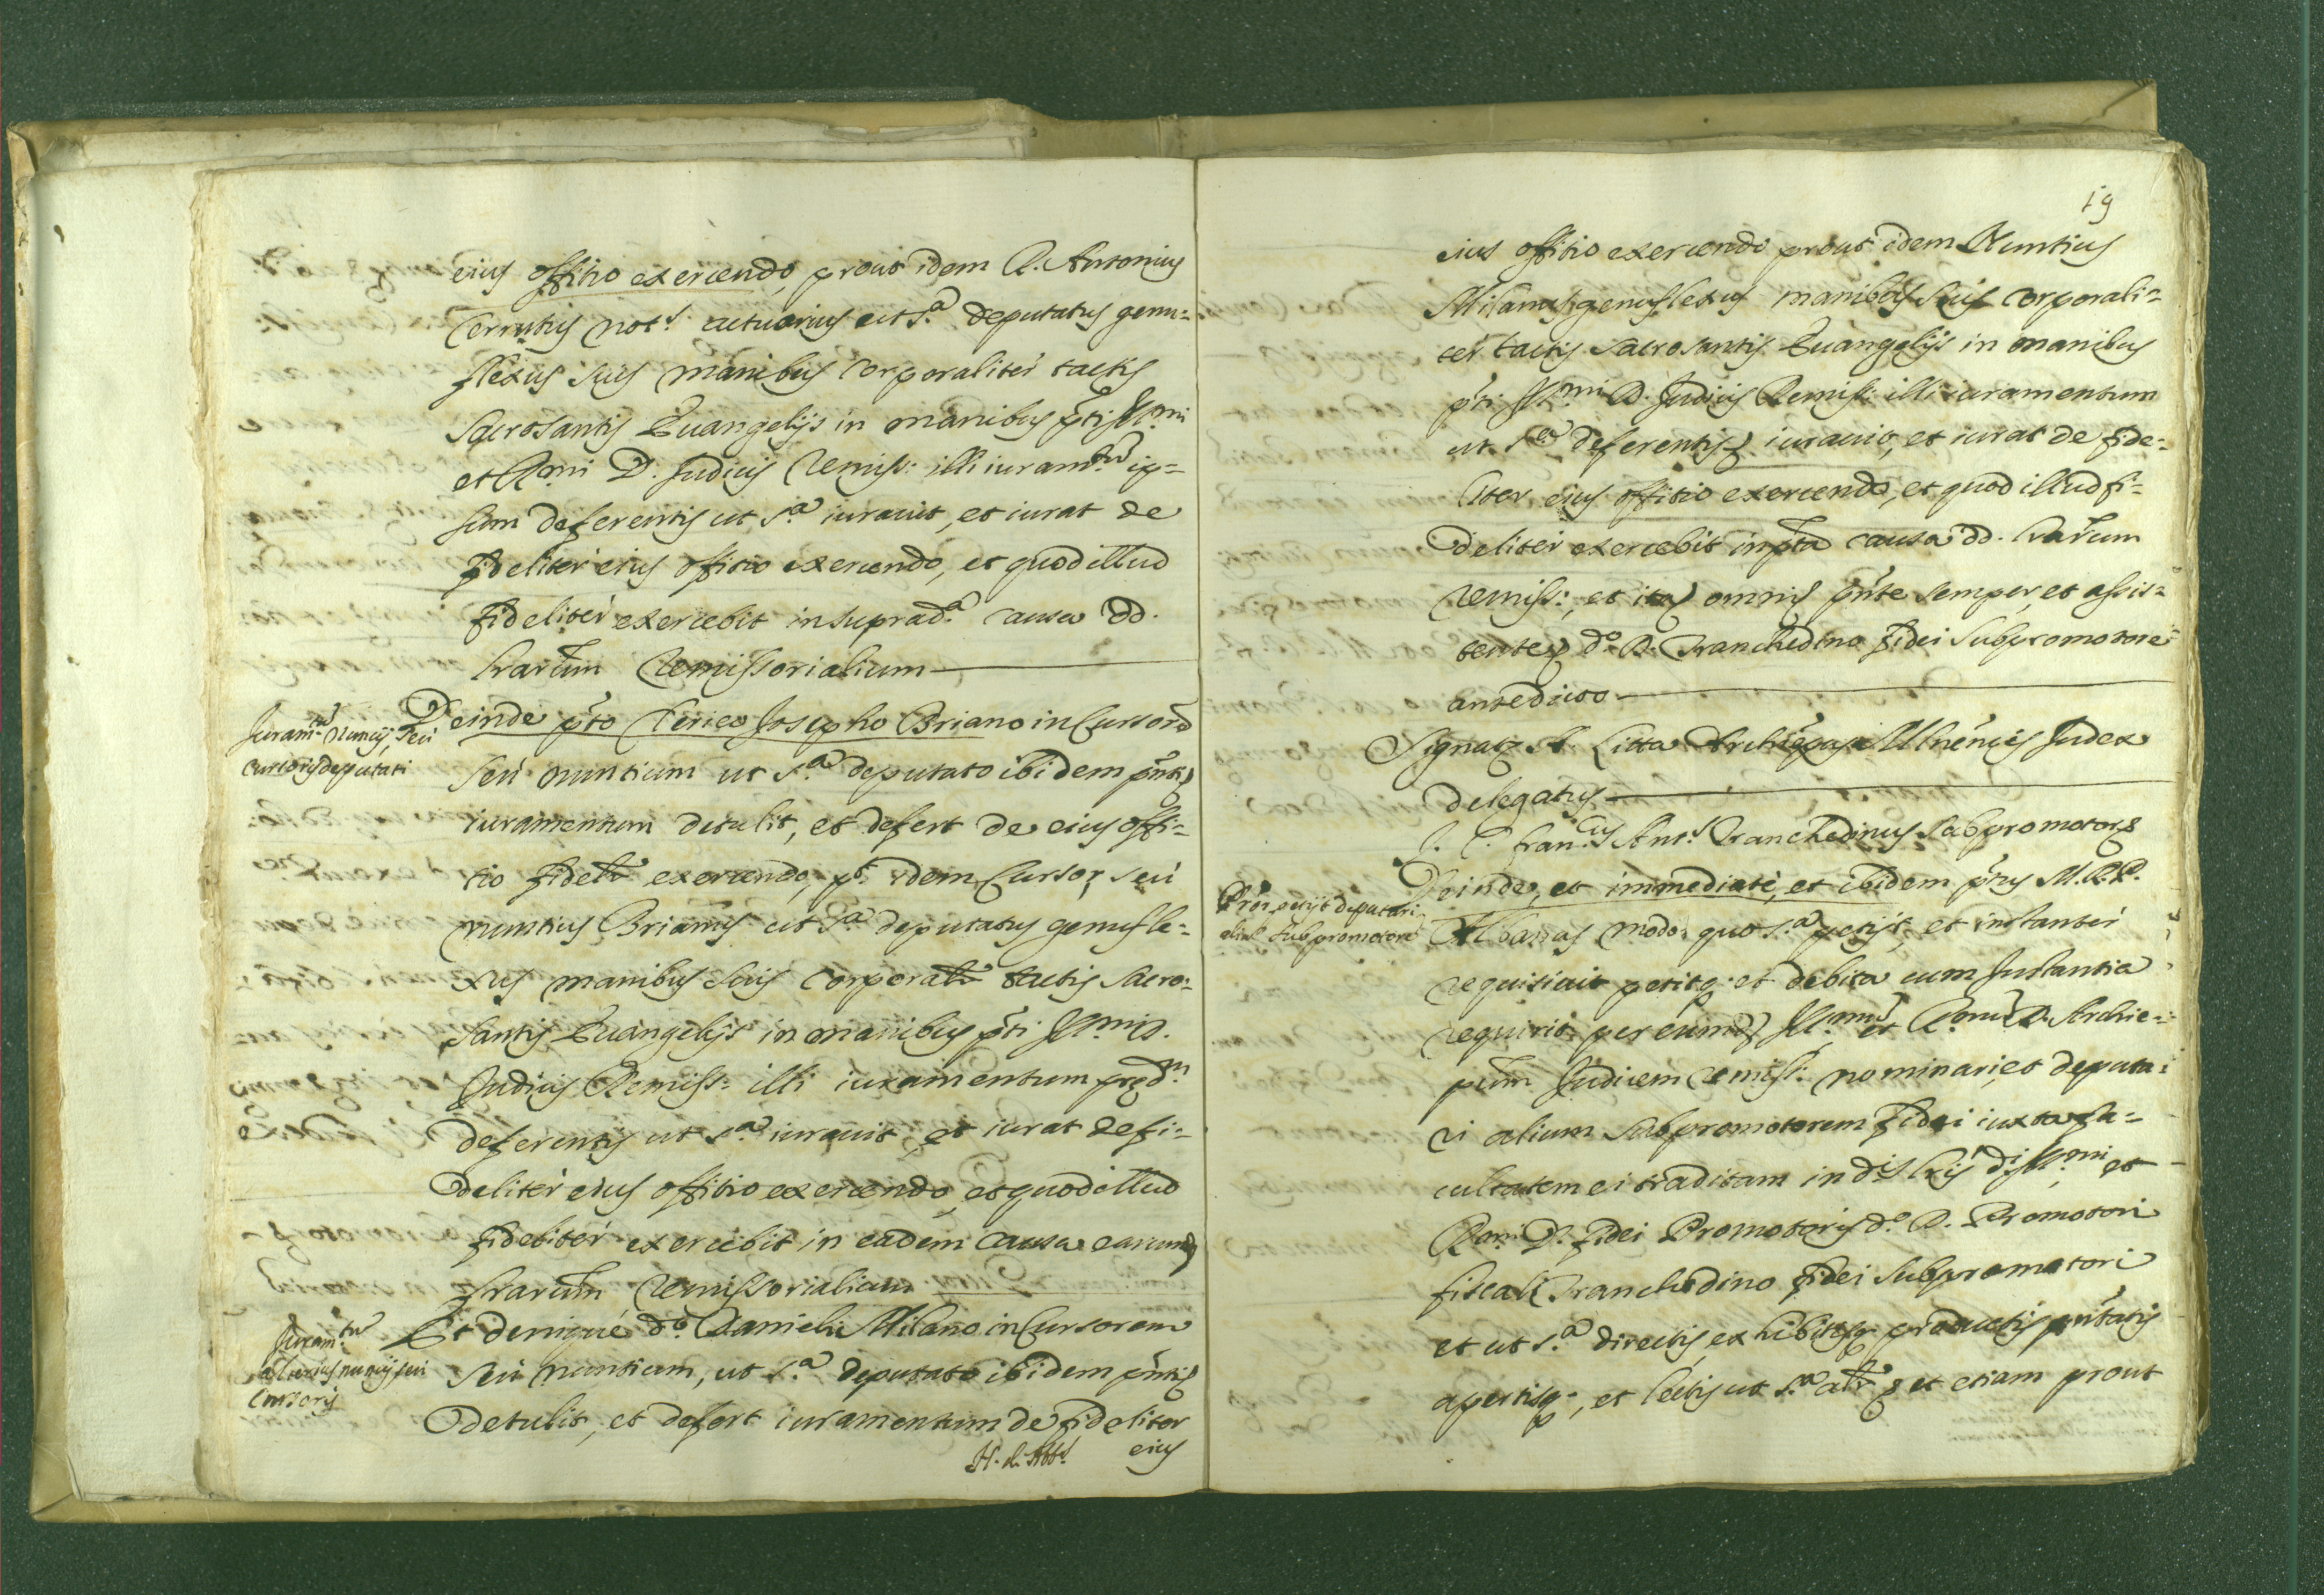 eius offitio exercendo, prout idem R. Antonius
Cerrutus not.s actuarius ut s.a deputatus genu=
flexus suis manibus corporaliter tactis
Sacrosantis Euangelijs in manibus p̃ti Ill.mi
et R.mi D. Judicis Remiss: illi iuram.tu ip=
sum deferentis ut s.a iurauit, et iurat de
fideliter eius offitio exercendo, et quod illud
fideliter exercebit in suprad.a causa dd.
lrarum Remissorialium
Juram.tu Nuncij, seu
cursoris deputati
Deinde p̃to Clerico Josepho Briano in Cursorẽ
seu nuntium ut s.a deputato ibidem p̃nti
iuramentum detulit, et defert de eius offi=
tio fidelr exercendo, pt. idem Cursor, seu
nuntius Brianus ut s.a deputatus genufle=
xus manibus suis corporalr tactis sacro=
santis Euangelijs in manibus p̃ti Ill.mi D.
Judicis Remiss: illi iuramentum pred.m
deferentis ut s.a iurauit, et iurat de fi=
deliter eius offitio exercendo, et quod illud
fideliter exercebit in eadem causa earumd
lrarum Remissorialium
Juram.tu
alterius nuncij seu
Cursoris
Et denique d.o Danieli Milano in Cursorem
seu nuntium, ut s.a deputato ibidem p̃nti
detulit, et defert iuramentum de fideliter
H. d. Abb.s eius
19
eius offitio exercendo prout idem Nuntius
Milanus genuflexus manibus suis corporali=
ter tactis sacrosantis Euangelijs in manibus
p̃ti Ill.mi D. Judicis Remiss: illi iuramentum
ut s.a deferentis iurauit, et iurat de fide=
liter eius offitio exercendo, et quod illud fi=
deliter exercebit in p̃ta causa dd. lrarum
Remiss:, et ita omnis p̃nte semper, et assis=
tente d.o D. Tranchedino fidei Subpromotore
antedicto
Signat A. Litta Archiep̃us Mlñensis Judex
delegatus
J. C. Fran.cus Ant.s Tranchedinus Subpromotor
P̃ror petijt deputari
aliũ Subpromotore
Deinde, et immediate, et ibidem p̃ns M.R.P.
Albanas modo quo s.a petijt, et instanter
requisiuit petitq. et debita cum Instantia
requirit per eumd Ill.mu et R.mu D. Archie=
pum Judicem Remiss: nominari, et deputa=
ri alium Subpromotorem fidei iuxta fa=
cultatem ei traditam in d.is lris d.i Ill.mi et
R.mi D. fidei Promotoris d.o D. Promotori
fiscali Tranchedino fidei Subpromotori
et ut s.a directis, exhibitisq. productis p̃ntatis
apertisq., et lectis ut s.a alr et etiam prout